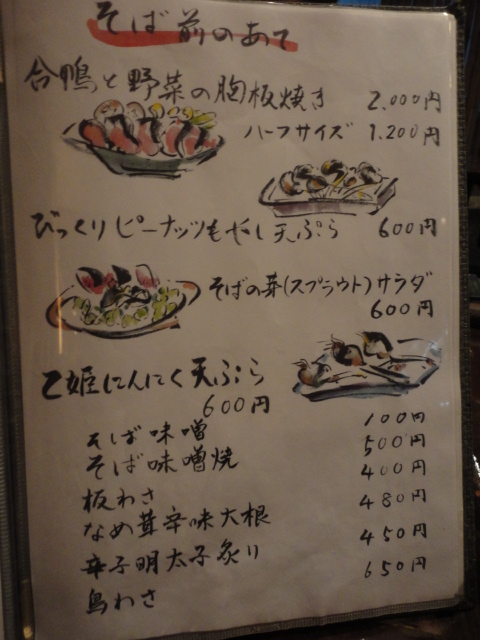 そば前のあて
合鴨と野菜の胸板焼き 2,000円
ハーフサイズ 1,200円
びっくりピーナッツもやし天ぷら 600円
そばの芽(スプラウト)サラダ
600円
乙姫にんにく天ぷら
600円
そば味噌 100円
そば味噌焼 500円
板わさ 400円
なめ茸辛味大根 480円
辛子明太子炙り 450円
鳥わさ 650円